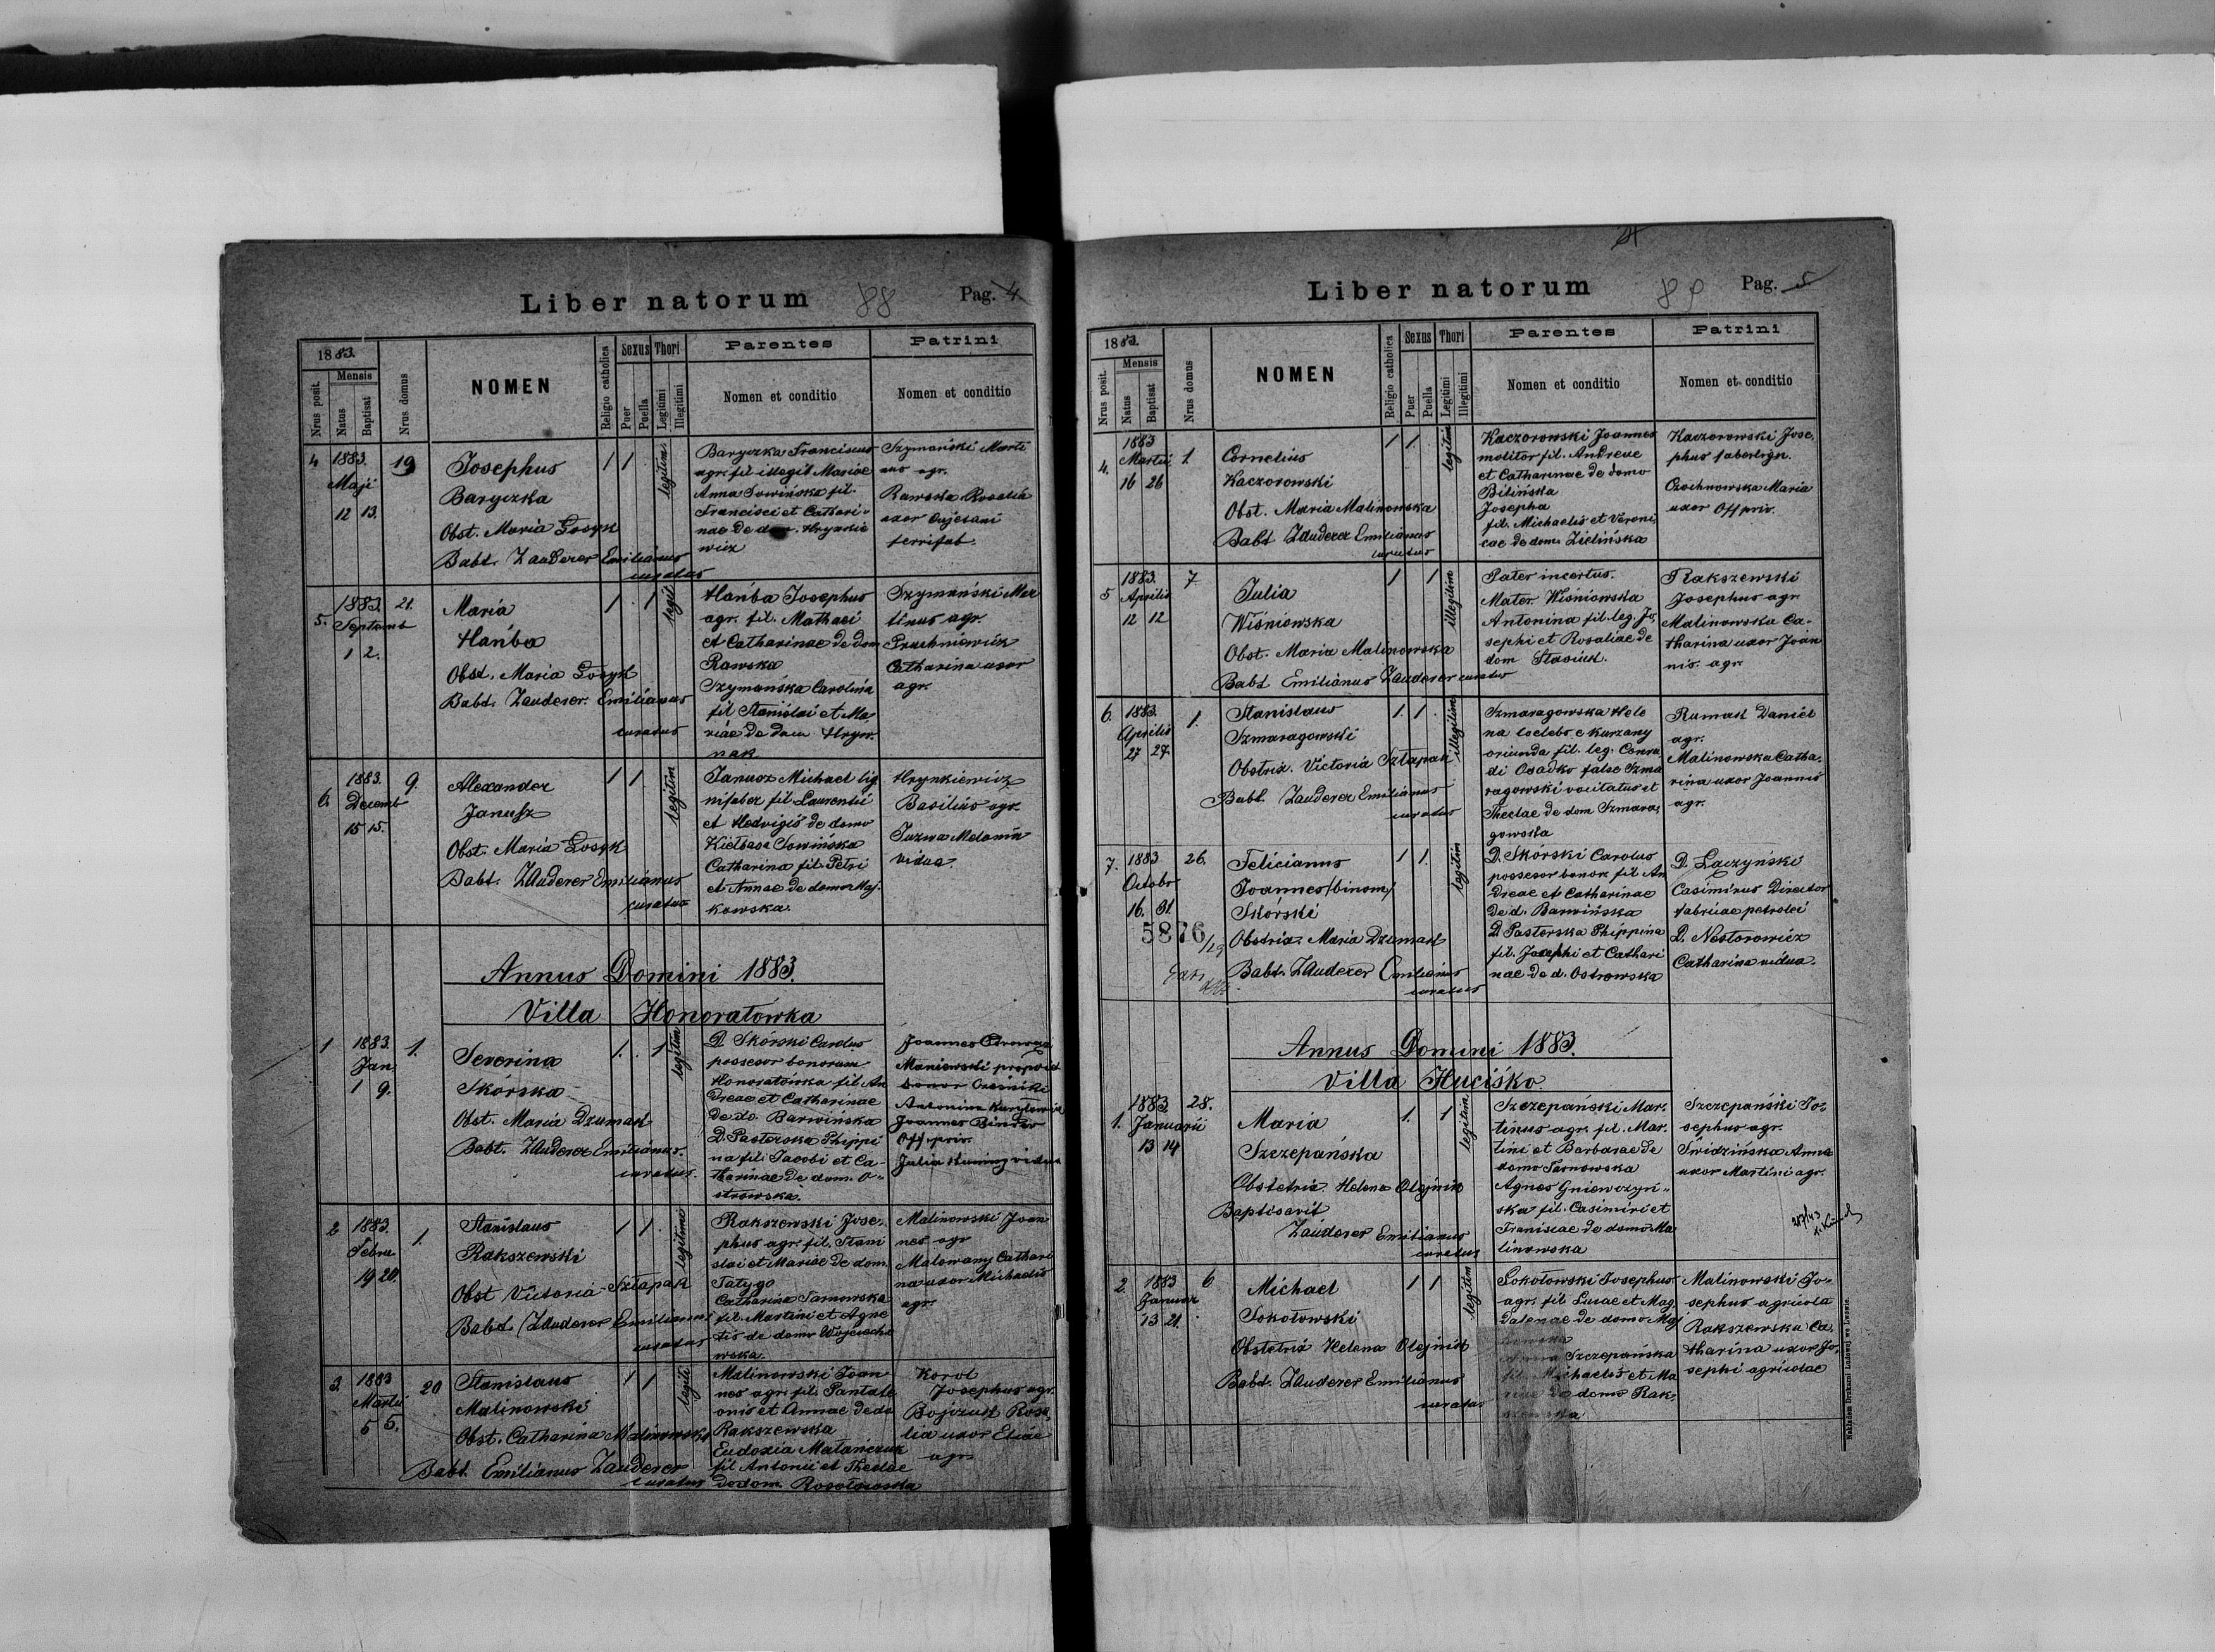 Liber natorum 88 Pag. 4
1883.
Mensis
Nrus posit.
Natus
Baptisat
Nrus domus
NOMEN
Religio catholica
Sexus
Puer
Puella
Thori
Legitimi
Illegitimi
Parentes
Nomen et conditio
Patrini
Nomen et conditio
4 1883. Maji 12 13. 19
Josephus
Baryczka
Obst. Maria Gosyk
Babt. Zauderer Emilianus
curatus
1 1 legitim
Baryczka Franciscus
agr. fil illegit Mariae
Anna Sowińska fil.
Francisci et Cathari-
nae de dom. Hrynkie
wicz
Szymański Marti
nus agr.
Rawska Rosalia
uxor
5. 1883. Septemb 1 2. 21.
Maria
Hańba
Obst. Maria Gosyk
Babt. Zauderer. Emilianus
curatus
1 1 legit
Hańba Josephus
agr. fil. Mathaei
et Catharinae de dom
Rawska
Szymańska Carolina
fil Stanislai et Ma
riae de dom Hryw.
nak
Szymański Mar
tinus agr.
Pruchniewicz
Catharina uxor
agr.
6. 1883. Decemb 15 15. 9.
Alexander
Janusz
Obst. Maria Gosyk
Babt. Zauderer Emilianus
curatus
1 1 legitim
Janusz Michael lig
nifaber fil Laurentii
et Hedvigis de domo
Kiełbasa Sowińska
Catharina fil. Petri
et Annae de domo Maj-
kowska.
Hrynkiewicz
Basilius agr.
Melania
vidua
Annus Domini 1883.
Villa Honoratowka
1 1883. Jan 1 9. 1.
Severina
Skórska
Obst. Maria Dzumak
Babt. Zauderer Emilianus.
curatus.
1. 1 legitim
D. Skórski Carolus
possesor bonorum
Honoratowka fil An
dreae et Catharinae
de do. Barwińska
D. Pasterska Phippi
na fil. Jacobi et Ca-
tharinae de dom. O-
strowska.
Joannes
Maniewski
Antonina
Joannes Binder
Off. priv.
Julia vidua
2 1883. Febru 19 20. 1.
Stanislaus
Rakszewski
Obst Victoria Sztapak
Babt. Zauderer Emilianus
curatus
1 1 legitimi
Rakszewski Jose.
phus agr. fil. Stani
slai et Mariae de dom.
Tatygo
Catharina Tarnowska
fil. Martini et Agne
tis de domo Wojciecho
wska.
Malinowski Joan
nes agr
Malowany Cathari
na uxor Michaelis
agr.
3. 1883 Martii 5 5. 20
Stanislaus
Malinowski
Obst. Catharina Malinowska
Babt. Emilianus Zauderer
curatus
1 1 legit
Malinowski Joan
nes agr. fil. Pantale
onis et Annae de do
Rakszewska
Eudoxia Matańczuk
fil Antonii et Theclae
de dom. Rosołowska
Korol
Josephus agr.
Bojczuk Rosa
lia uxor Eliae
agr.
Liber natorum 89 Pag. 5
1883.
Mensis
Nrus posit.
Natus
Baptisat
Nrus domus
NOMEN
Religio catholica
Sexus
Puer
Puella
Thori
Legitimi
Illegitimi
Parentes
Nomen et conditio
Patrini
Nomen et conditio
4. 1883 Martii 16 26 1.
Cornelius
Kaczorowski
Obst. Maria Malinowska
Babt Zauderer Emilianus
curatus
1 1. legitim
Kaczorowski Joannes
molitor fil. Andreae
et Catharinae de domo
Bilińska
Josepha
fil. Michaelis et Veroni,
cae de dom. Zielińska
Kaczorowski Jose,
phus faberlign.
Czochnowska Maria
uxor Off priv.
5 1883. Aprilis 12 12 7
Julia
Wiśniowska
Obst. Maria Malinowska
Babt Emilianus Zauderer curatus
1 1 illegitim
Pater incertus.
Mater. Wiśniowska
Antonina fil. leg. Jo,
sephi et Rosaliae de
dom Stasiuk.
Rakszewski
Josephus agr
Malinowska Ca-
tharina uxor Joan
nis. agr
6. 1883. Aprilis 27 27 1.
Stanislaus
Szmaragowski
Obstrix. Victoria Sztapak
Babt. Zauderer Emilianus
curatus
1. 1 illegitim
Szmaragowska Hele
na coelebs e Kurzany
oriunda fil. leg. Conra
di Osadko false Szma
ragowski vocitatus et
Theclae de dom Szmara,
gowska
Rumak Daniel
agr.
Malinowska Catha.
rina uxor Joannis
agr.
7. 1883 Octobr 16. 31. 26.
Felicianus
Joannes /binom/
Skórski
5876/19
Obstrix. Maria Dzumak
Babt. Zauderer Emilianus
curatus
1 1. legitim
D. Skórski Carolus
possesor bonor fil An
dreae et Catharinae
de d. Barwińska
D. Pasterska Phippina
fil. Josephi et Cathari
nae de d. Ostrowska
D. Łaczyński
Casimirus Director
fabricae petrolei
D. Nestorowicz
Catharina vidua.
Annus Domini 1883.
Villa Hucisko.
1. 1883 Januarii 13 14 28.
Maria
Szczepańska
Obstetrix. Helena Olejnik
Baptisavit
Zauderer Emilianus
curatus
1. 1 legitim
Szczepański Mar.
tinus agr. fil. Mar.
tini et Barbarae de
domo Tarnowska
Agnes Gniewczyń-
ska fil. Casimiri et
Franiscae de domo Ma
linowska
Szczepański Jo-
sephus agr.
Świdzińska Anna
uxor Martini agr.
2. 1883 Januar 13 21. 6
Michael
Sokołowski
Obstetrix Helena Olejnik
Babt. Zauderer Emilianus
curatus
1 1 legitim
Sokołowski Josephus
agr. fil Lucae et Mag
dalenae de domo Maj
kowska
Anna Szczepańska
fil. Michaelis et Ma
riae de domo Rak,
szewska
Malinowski Jo-
sephus agricola
Rakszewska Ca,
tharina uxor Jo,
sephi agricolae
Nakładem Drukarni Ludowej we Lwowie.